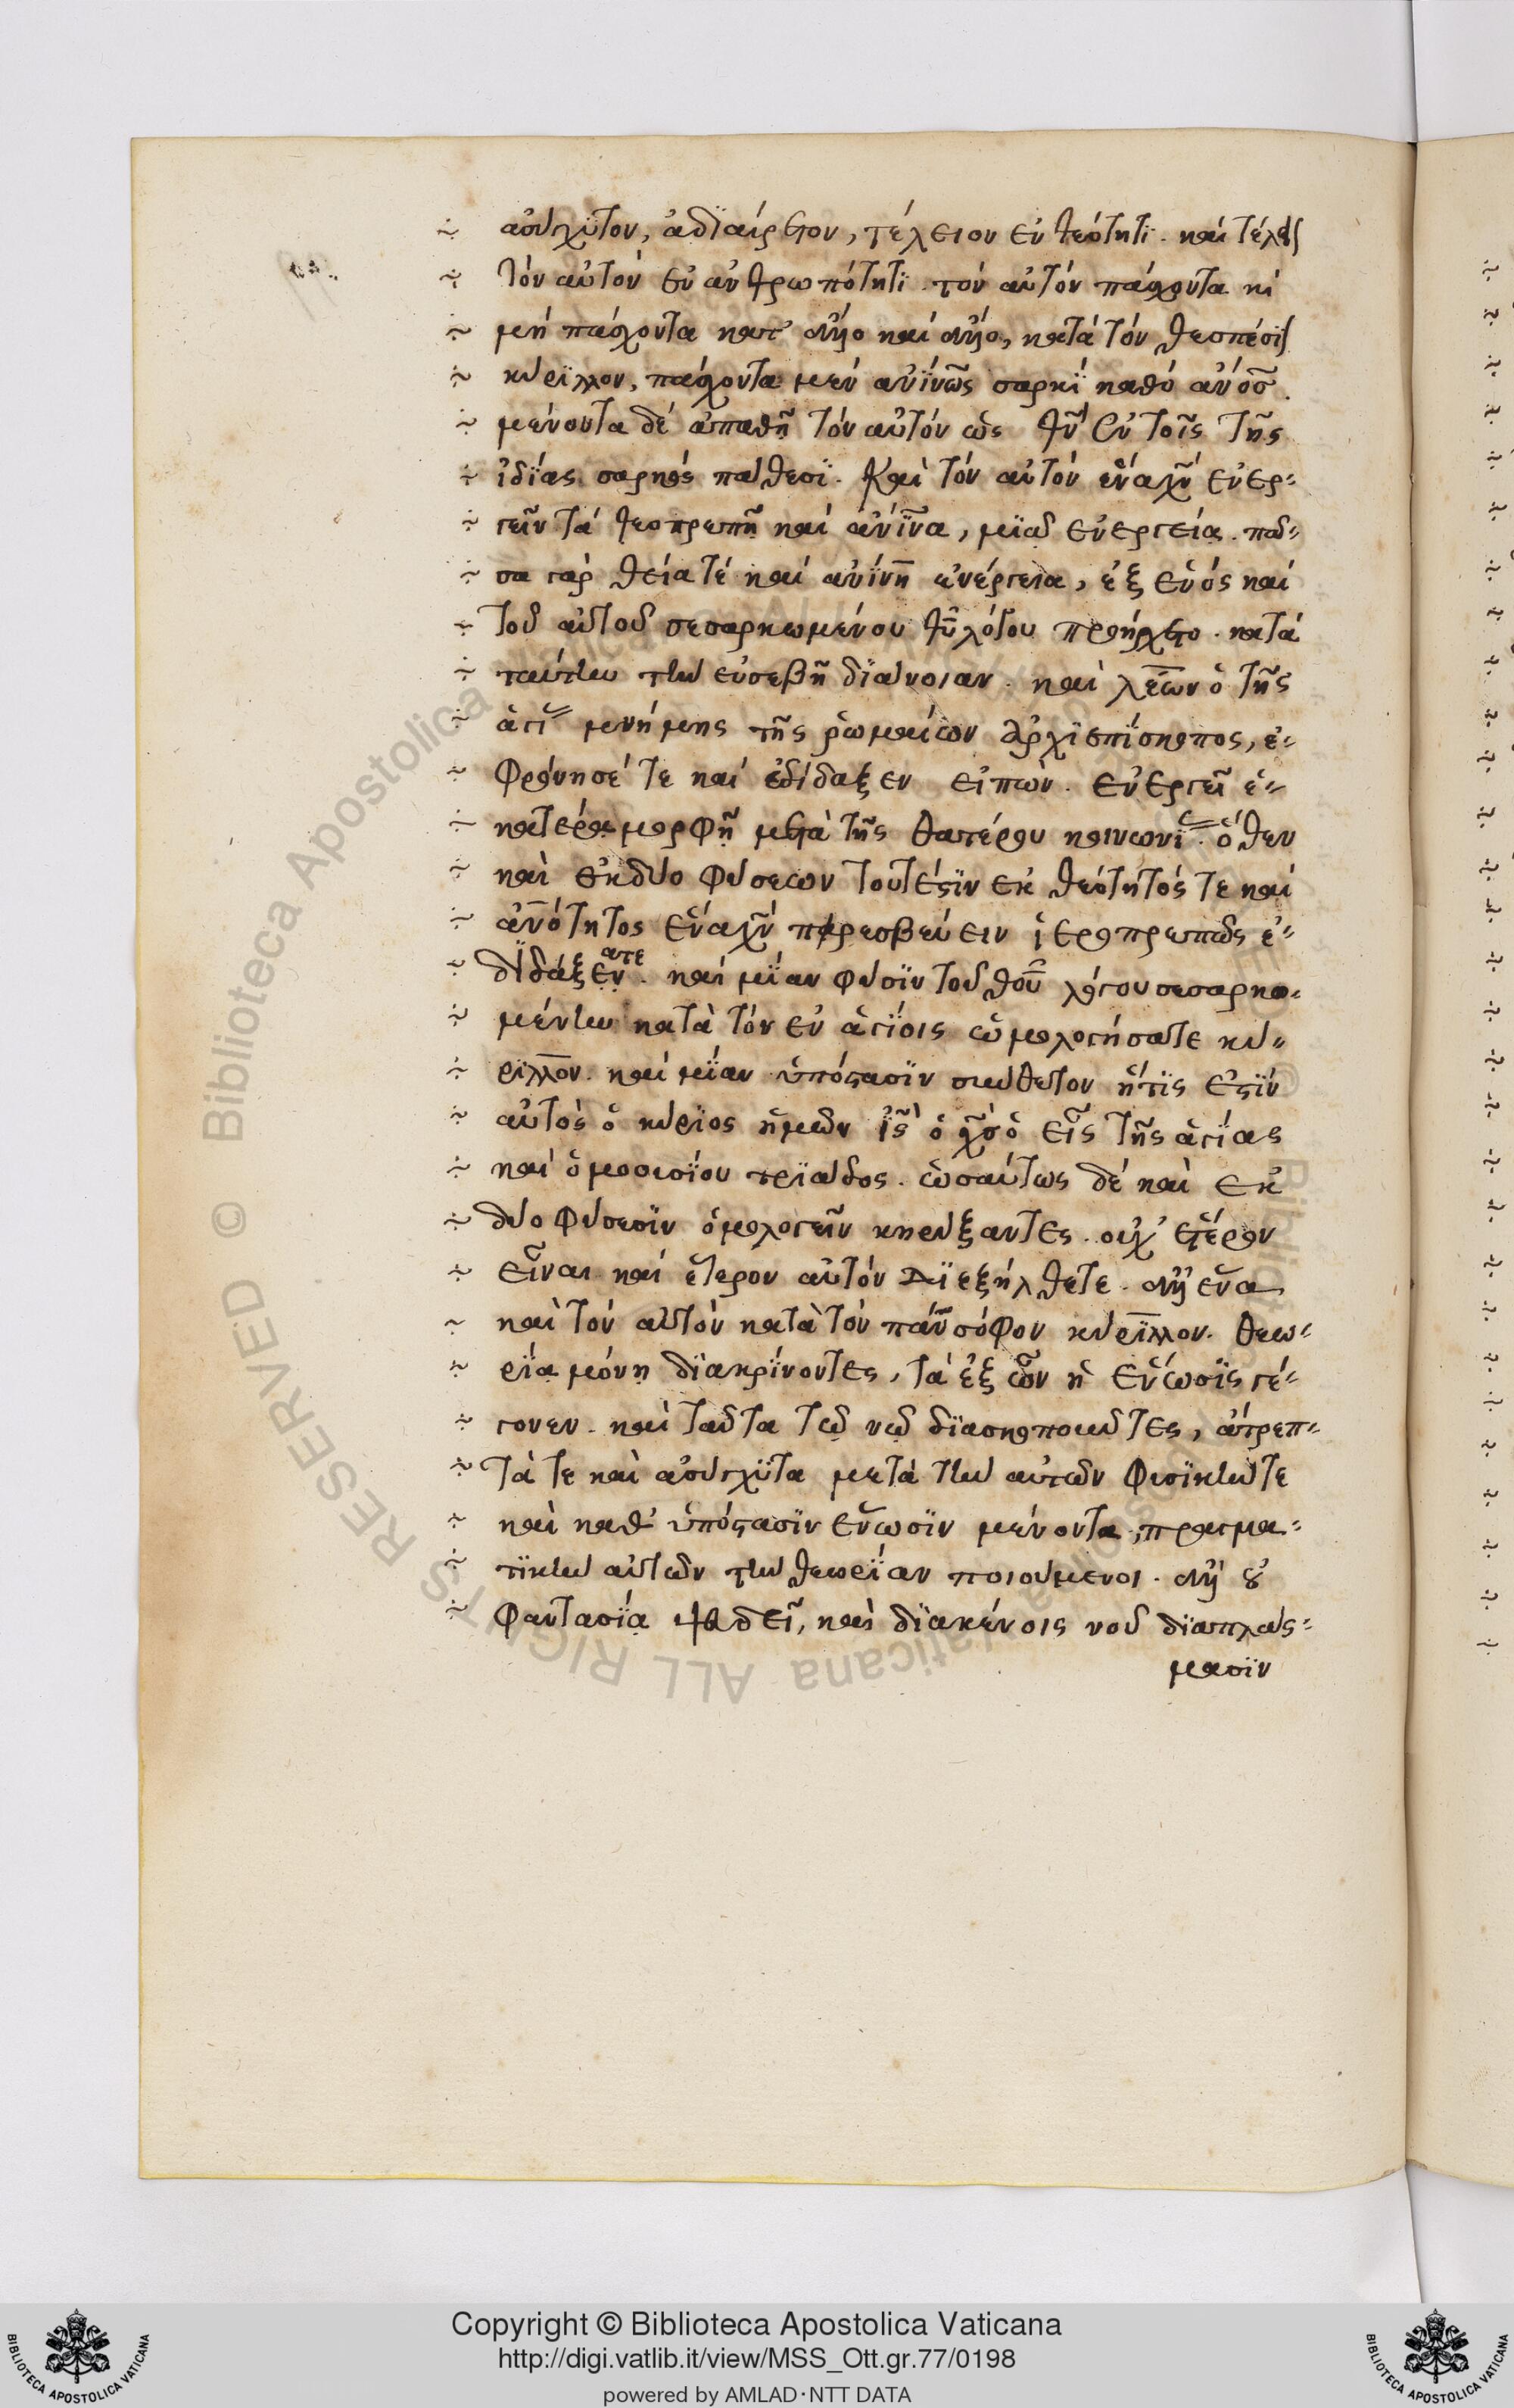 ἀσύγχϋτον, ἀδϊαίρετον, τέλειον ἐν θεότητϊ. καὶ τέλειον
τὸν αὐτὸν ἐν ἀνθρωπότητϊ. τὸν αὐτὸν πάσχοντα κὶ
μὴ πάσχοντα κατ' ἄλλο καὶ ἄλλο, κατὰ τὸν θεσπέσϊον
κύρϊλλον, πάσχοντα μὲν ἀνΐνως σαρκῒ καθὸ ἄνος̃.
μένοντα δὲ ἀπαθῆ τὸν αὐτὸν ὡς θν̃ ἐν τοῖς τῆς
ἰδΐας σαρκὸς πάθεσϊ. Καὶ τὸν αὐτὸν ἕνα χν̃ ἐνερ-
γεῖν τὰ θεοπρεπῆ καὶ ἀνΐνα, μϊᾷ ἐνεργείᾳ. πᾶ-
σα γὰρ θεία τὲ καὶ ἀνίνη ἐνέργεια, ἐξ ἑνὸς καὶ
τοῦ αὐτοῦ σεσαρκωμένου θῦ λόγου προήρχετο. κατὰ
ταύτην τὴν εὐσεβῆ δϊάνοιαν. καὶ λέων ὁ τῆς
ἁγί μνήμης τῆς ῥωμαίων ἀρχϊεπΐσκοπος, ἐ-
φρόνησέ τε καὶ ἐδίδαξεν εἰπών. ἐνεργεῖ ἑ-
κατέρα μορφὴ μετὰ τῆς θατέρου κοινωνί. ὅθεν
καὶ ἐκ δύο φύσεων τουτέςϊν ἐκ θεότητός τε καὶ
ἀνότητος ἕνα χν̃ πρεσβεύειν ἱεροπρεπῶς ἐ-
δϊδάξατε. καὶ μΐαν φύσϊν τοῦ θοῦ λόγου σεσαρκω-
μένην κατὰ τὸν ἐν ἁγΐοις ὡμολογήσατε κύ-
ρϊλλον. καὶ μΐαν ὑπόςασϊν σύνθετον ἥτϊς ἐςῒν
αὐτὸς ὁ κύρϊος ἡμῶν ις̃ ὁ χς̃ ὁ εἷς τῆς ἁγίας
καὶ ὁμοουσΐου τρϊάδος. ὡσαύτως δὲ καὶ ἐκ
δύο φύσεσϊν ὁμολογεῖν κηρύξαντες. οὐχ' ἕτερον
εἶναι καὶ ἕτερον αὐτὸν δϊεξήλθετε. ἀλλ' ἕνα
καὶ τὸν αὐτὸν κατὰ τὸν πάνσοφον κύρϊλλον. θεω-
ρΐᾳ μόνῃ δϊακρΐνοντες, τὰ ἐξ ὧν ἡ ἕνωσϊς γέ-
γονεν. καὶ ταῦτα τῷ νῷ δϊασκοποῦντες, ἄτρεπ-
τά τε καὶ ἀσύγχϋτα μετὰ τὴν αὐτῶν φυσϊκήν τε
καὶ καθ' ὑπόςασϊν ἕνωσϊν μένοντα, πραγμα-
τϊκὴν αὐτῶν τὴν θεωρΐαν ποιούμενοι. ἀλλ' ȣ̓
φαντασΐᾳ ψευδεῖ, καὶ δϊακένοις νοῦ δϊαπλάς-
μασϊν